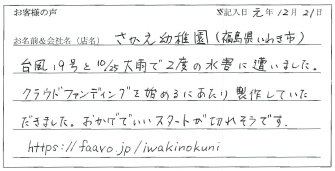 お客様の声 ※記入日 元年12月21日
お名前&会社名(店名) さかえ幼稚園(福島県いわき市)
台風19号と10/25大雨で2度の水害に遭いました。
クラウドファンディングを始めるにあたり製作していた
だきました。おかげでいいスタートが切れそうです。
https://faavo.jp/iwakinokuni